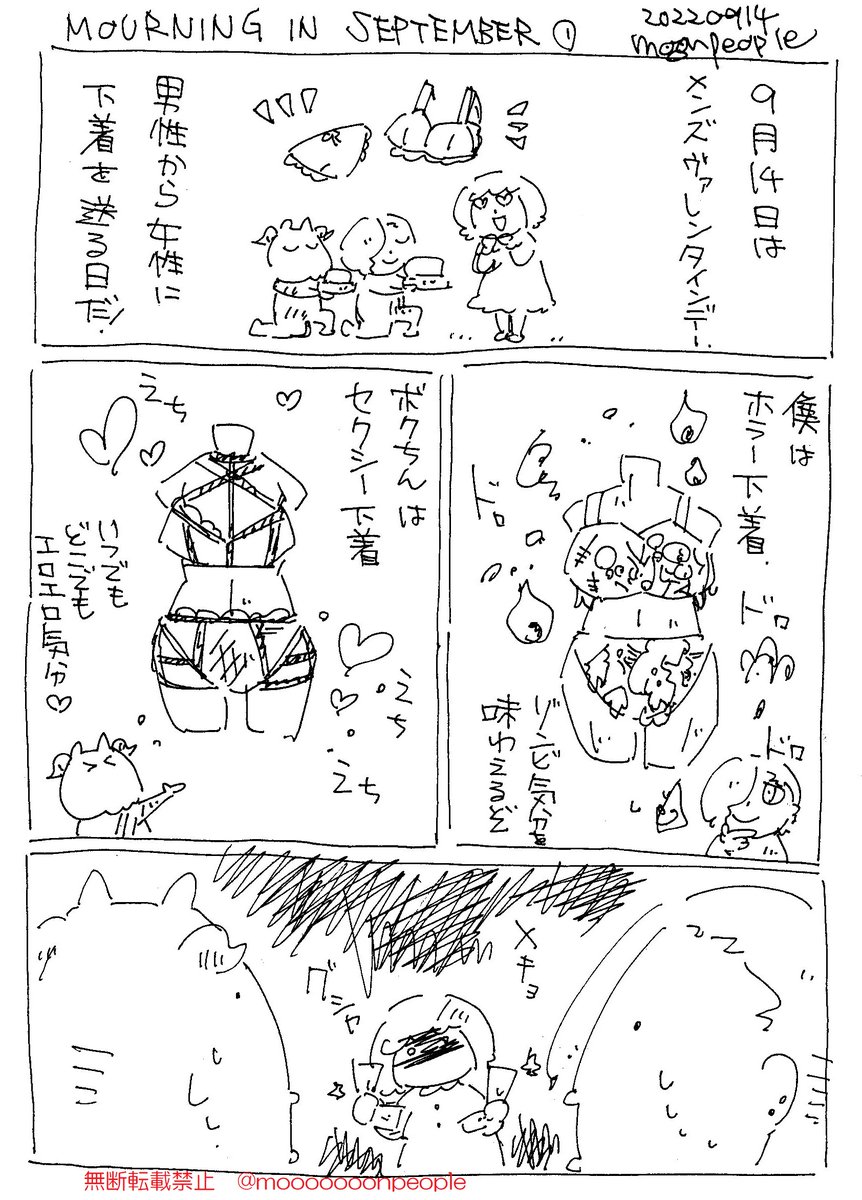 MOURNING IN SEPTEMBER ①
20220914
moonpeople
9月14日は
メンズヴァレンタインデー.
男性から女性に
下着を送る日だ!
僕は
ホラー下着.
ドロ
ドロ
ドロ
ゾンビ気分
味わえるぞ
ボクちんは
セクシー下着
えち
いつでも
どこでも
エロエロ気分♡
えち
えち
メキョ
グシャ
無断転載禁止 @mooooooohpeople